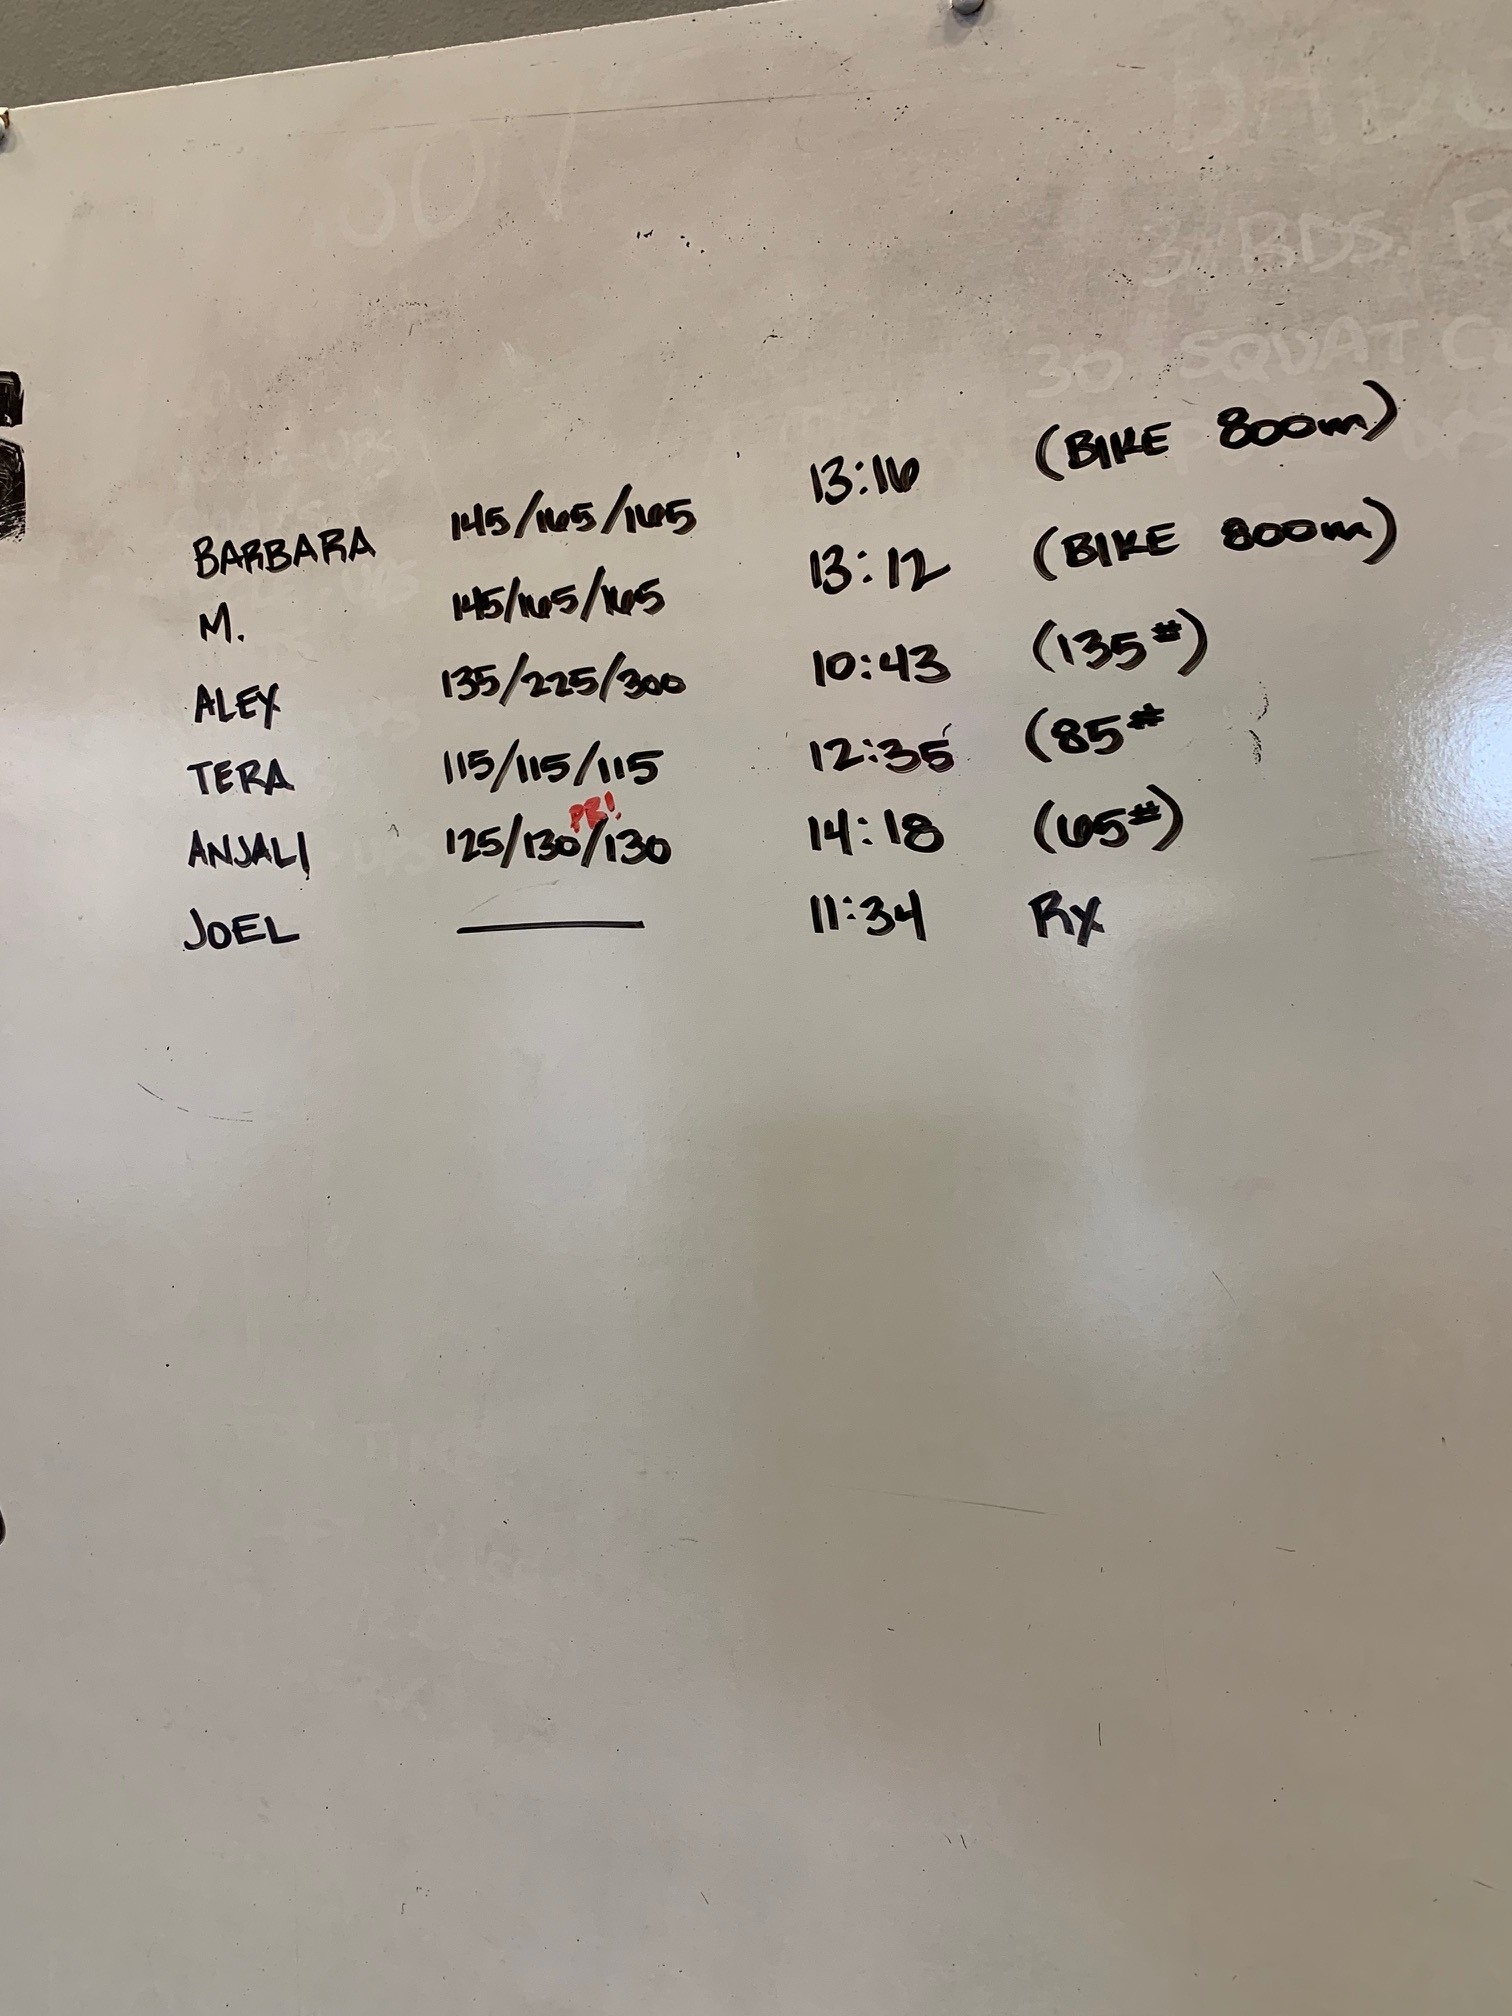 BARBARA 145/165/165 13:16 (BIKE 800m)
M. 145/165/165 13:12 (BIKE 800m)
ALEX 135/225/300 10:43 (135#)
TERA 115/115/115 12:35 (85#
PR!
ANJALI 125/130/130 14:18 (65#)
JOEL — 11:34 Rx
3 RDS.
30 SQUAT